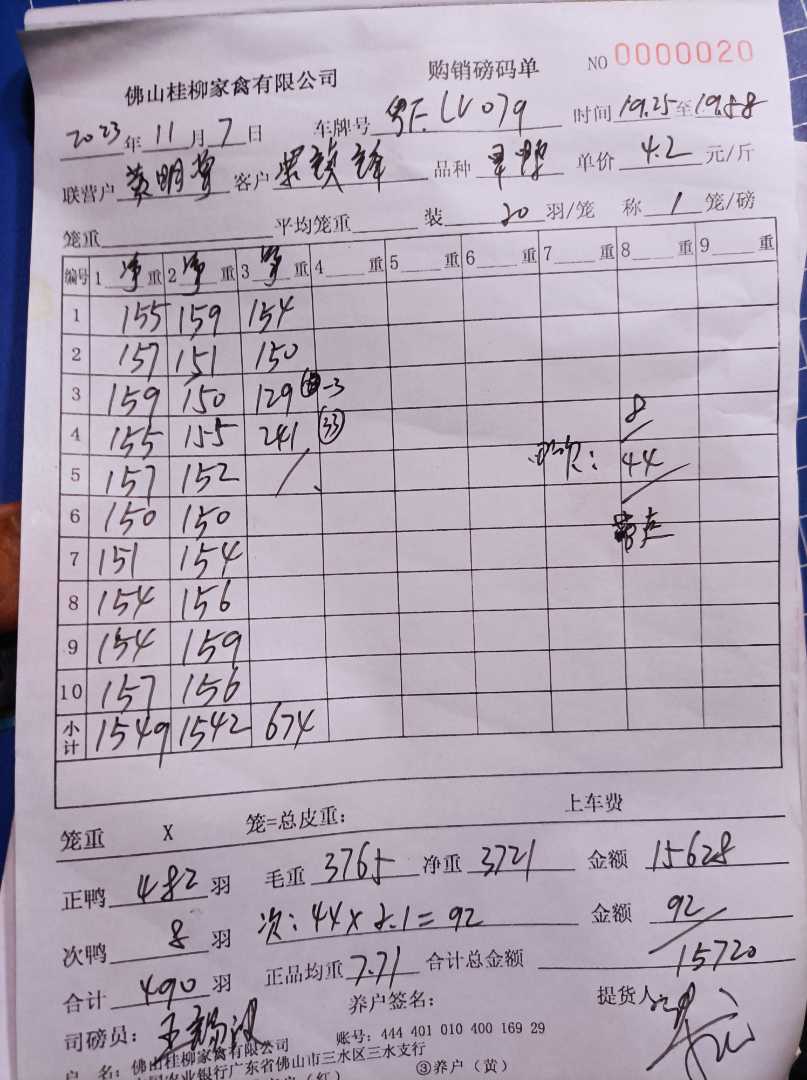 佛山桂柳家禽有限公司 购销磅码单 NO 0000020
2023年11月7日 车牌号 粤F.LV079 时间 19.25至19.58
联营户 黄明 客户 锋 品种 单价 4.2 元/斤
笼重 平均笼重 装 20 羽/笼 称 1 笼/磅
编号 1 净重 2 净重 3 重 4 重 5 重 6 重 7 重 8 重 9 重
1 155 159 154
2 157 151 150
3 159 150 129 -3
8
4 155 155 241 (33)
44
5 157 152
6 150 150
7 151 154
8 154 156
9 154 159
10 157 156
小计 1549 1542 674
笼重 X 笼=总皮重: 上车费
正鸭 482 羽 毛重 3765 净重 3721 金额 15628
次鸭 8 羽 次: 44×2.1=92 金额 92
合计 490 羽 正品均重 7.71 合计总金额 15720
司磅员: 养户签名: 提货人:
户 名: 佛山桂柳家禽有限公司 账号: 444 401 010 400 169 29
农业银行广东省佛山市三水区三水支行
(红) ③养户(黄)